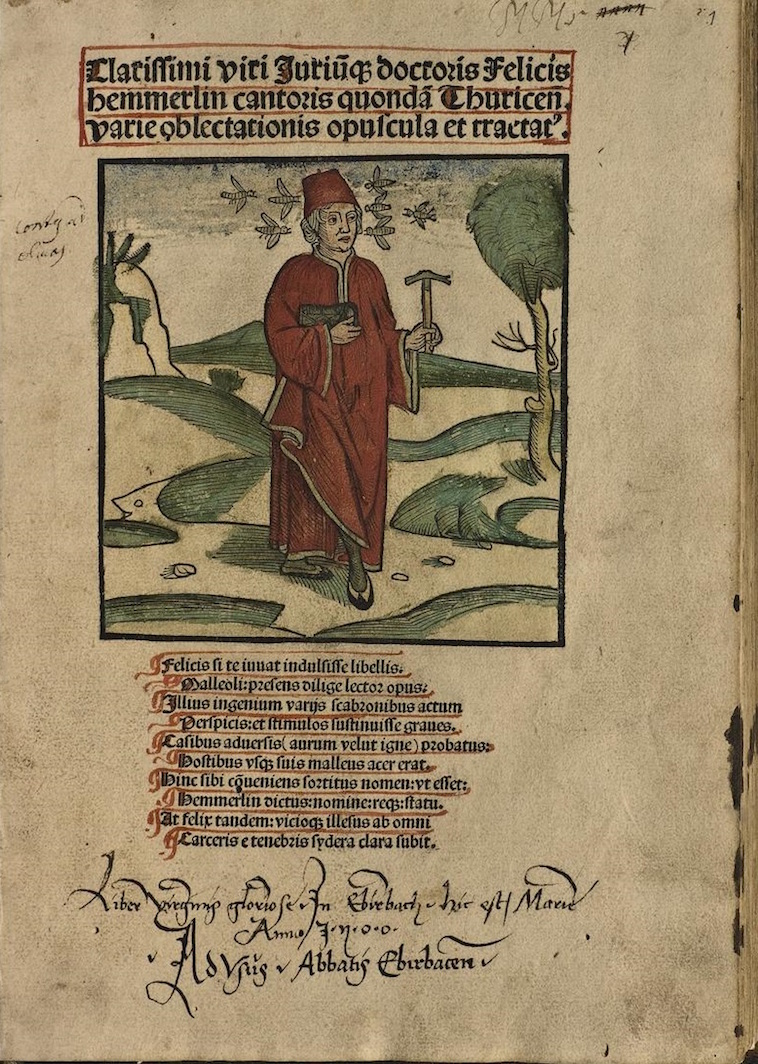 Clarissimi viri Juriūqꝫ doctoris Felicis
hemmerlin cantoris quondā Thuriceñ.
varie oblectationis opuscula et tractatꝰ.
Felicis si te iuuat indulsisse libellis.
Malleoli: presens dilige lector opus.
Illius ingenium varijs scabronibus actum
Perspicis: et stimulos sustinuisse graues.
Casibus aduersis (aurum velut igne) probatus:
Hostibus vsqꝫ suis malleus acer erat.
Hinc sibi cōueniens sortitus nomen: vt esset:
Hemmerlin dictus: nomine: reqꝫ: statu.
At felix tandem: vicioqꝫ illesus ab omni
Carceris e tenebris sydera clara subit.
Liber virginis gloriose In Ebirbach hic est Marie
Anno 1·5·0·0·
Ad vsū Abbatis Ebirbaceñ